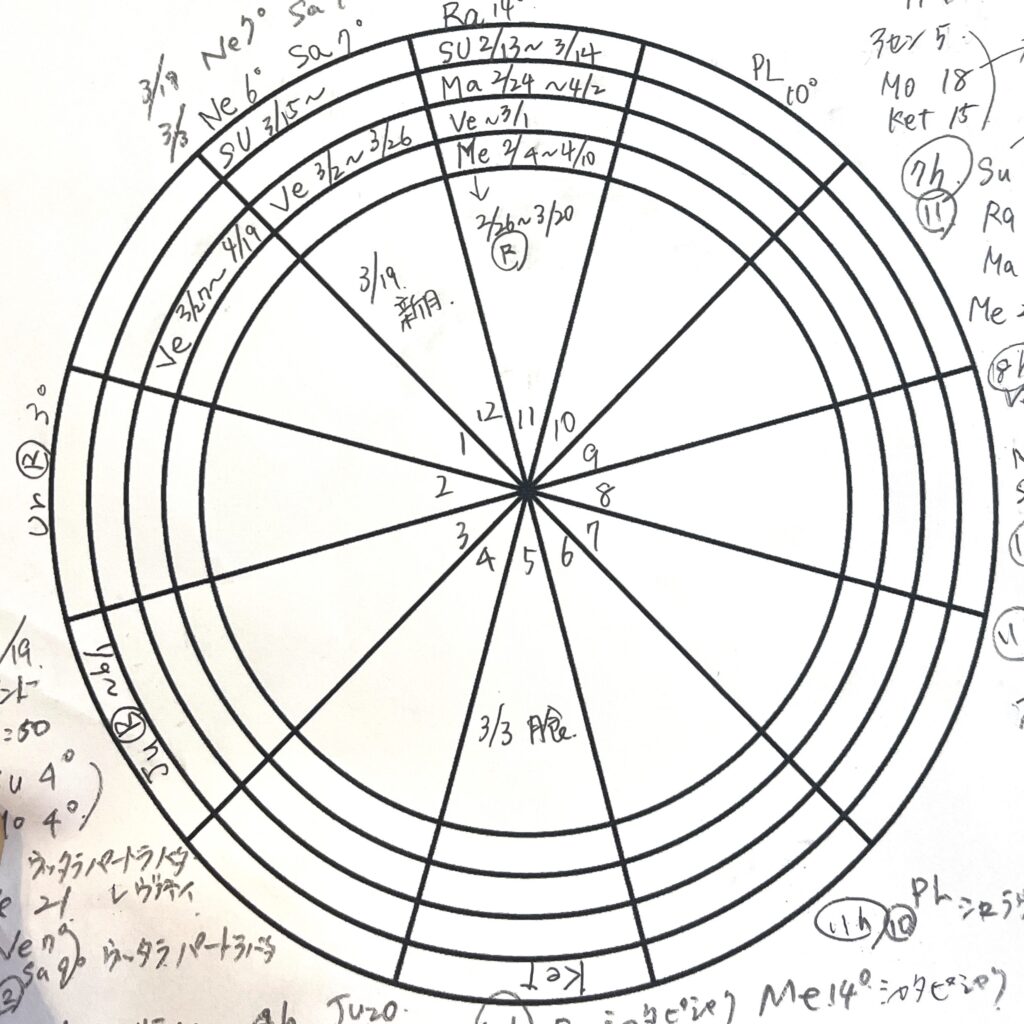 Ra 14°
3/19 Ne 7° Sa 7°
3/3 Ne 6° Sa 7°
SU 2/13~3/14
Ma 2/24~4/2
Ve ~3/1
Me 2/4~4/10
↓
2/26~3/20
R
PL 10°
3セン 5
Mo 18
Ket 15
7h
11
Su
Ra
Ma
Me
SU 3/15~
Ve 3/2~3/26
Ve 3/27~4/19
3/19.
新月.
Ur R 3°
12 11 10
1 9
2 8
3 7
4 5 6
1/9~ R Ju
3/3 月食.
Ket
/19.
=50
u 4°
4°
ウッタラバートラパダ
21 レヴティ
Ve 7°
Sa 9° ウッタラバートラパダ
Ju20.
Me 14° シャタビシャク
11h 10
11